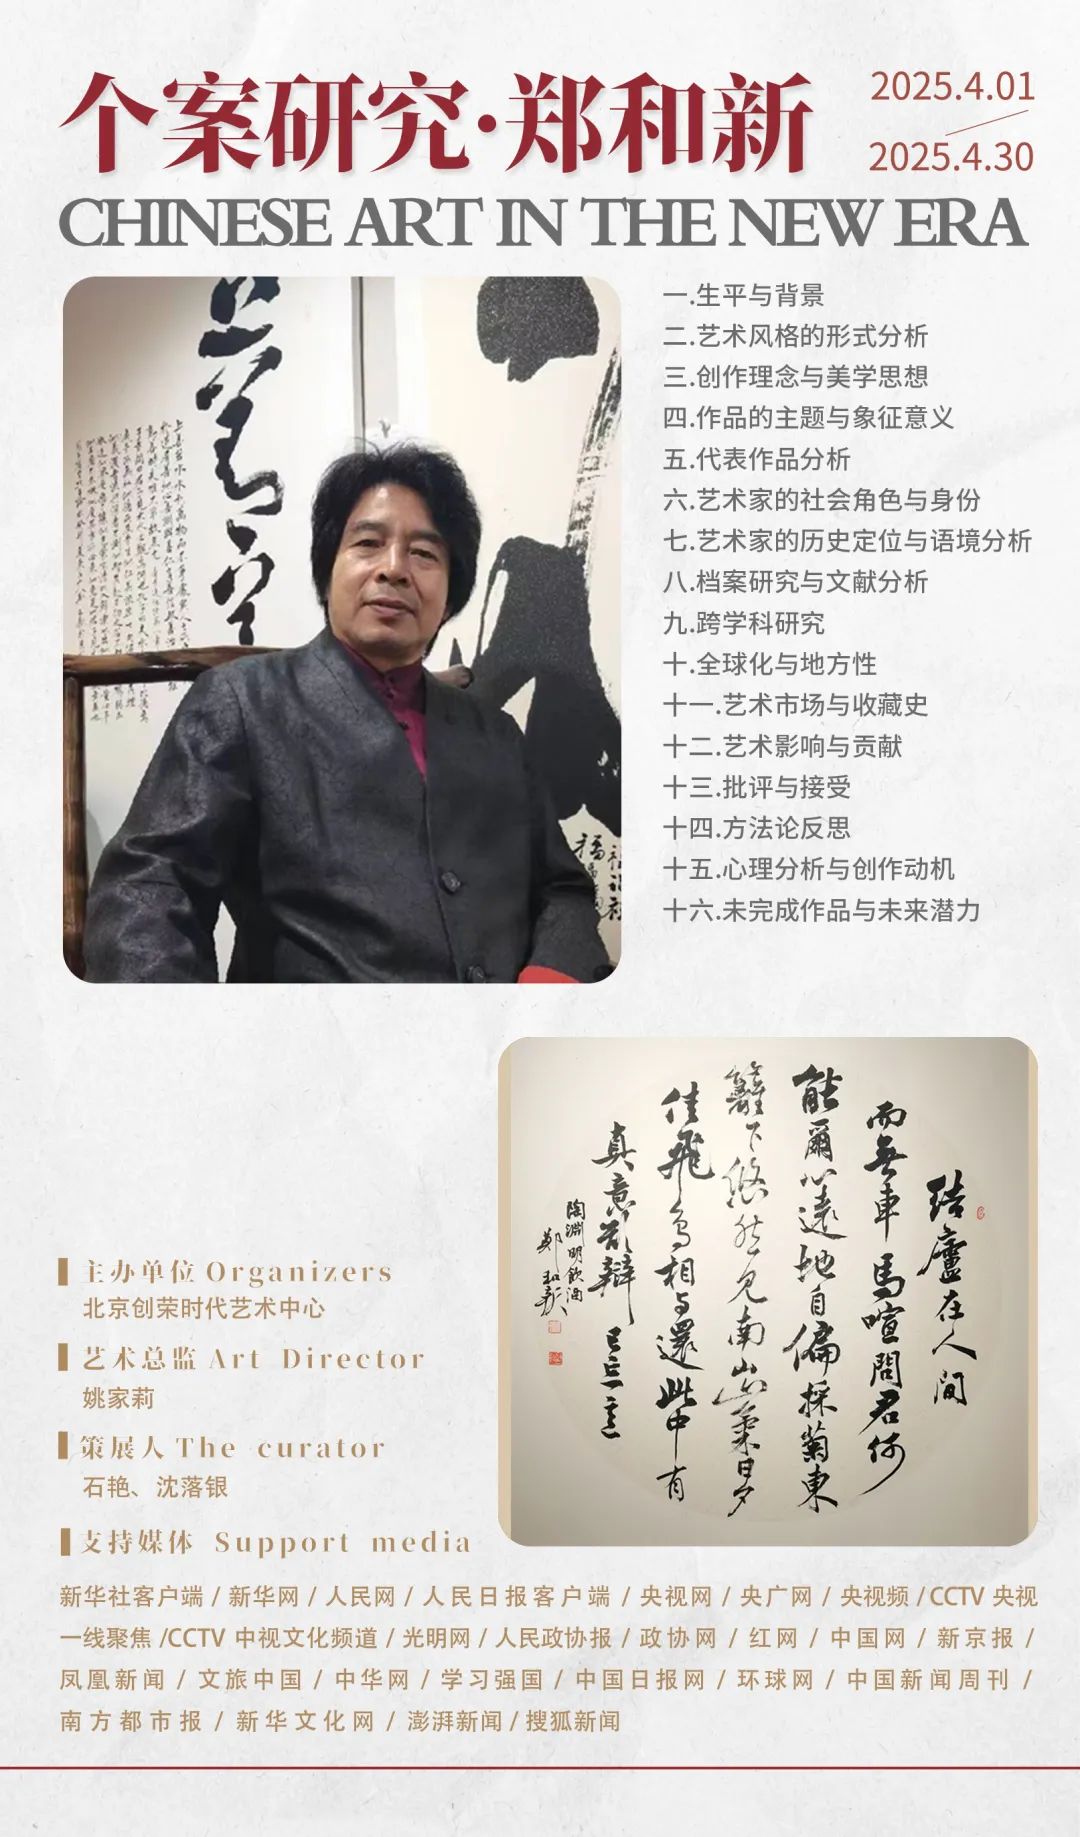 个案研究·郑和新
2025.4.01
2025.4.30
CHINESE ART IN THE NEW ERA
一.生平与背景
二.艺术风格的形式分析
三.创作理念与美学思想
四.作品的主题与象征意义
五.代表作品分析
六.艺术家的社会角色与身份
七.艺术家的历史定位与语境分析
八.档案研究与文献分析
九.跨学科研究
十.全球化与地方性
十一.艺术市场与收藏史
十二.艺术影响与贡献
十三.批评与接受
十四.方法论反思
十五.心理分析与创作动机
十六.未完成作品与未来潜力
結廬在人間
而無車馬喧問君何
能爾心遠地自偏採菊東
籬下悠然見南山山氣日夕
佳飛鳥相与還此中有
真意欲辯已忘言
陶淵明飲酒
鄭和新
主办单位 Organizers
北京创荣时代艺术中心
艺术总监 Art Director
姚家莉
策展人 The curator
石艳、沈落银
支持媒体 Support media
新华社客户端 / 新华网 / 人民网 / 人民日报客户端 / 央视网 / 央广网 / 央视频 / CCTV 央视
一线聚焦 /CCTV 中视文化频道 / 光明网 / 人民政协报 / 政协网 / 红网 / 中国网 / 新京报 /
凤凰新闻 / 文旅中国 / 中华网 / 学习强国 / 中国日报网 / 环球网 / 中国新闻周刊 /
南方都市报 / 新华文化网 / 澎湃新闻 / 搜狐新闻